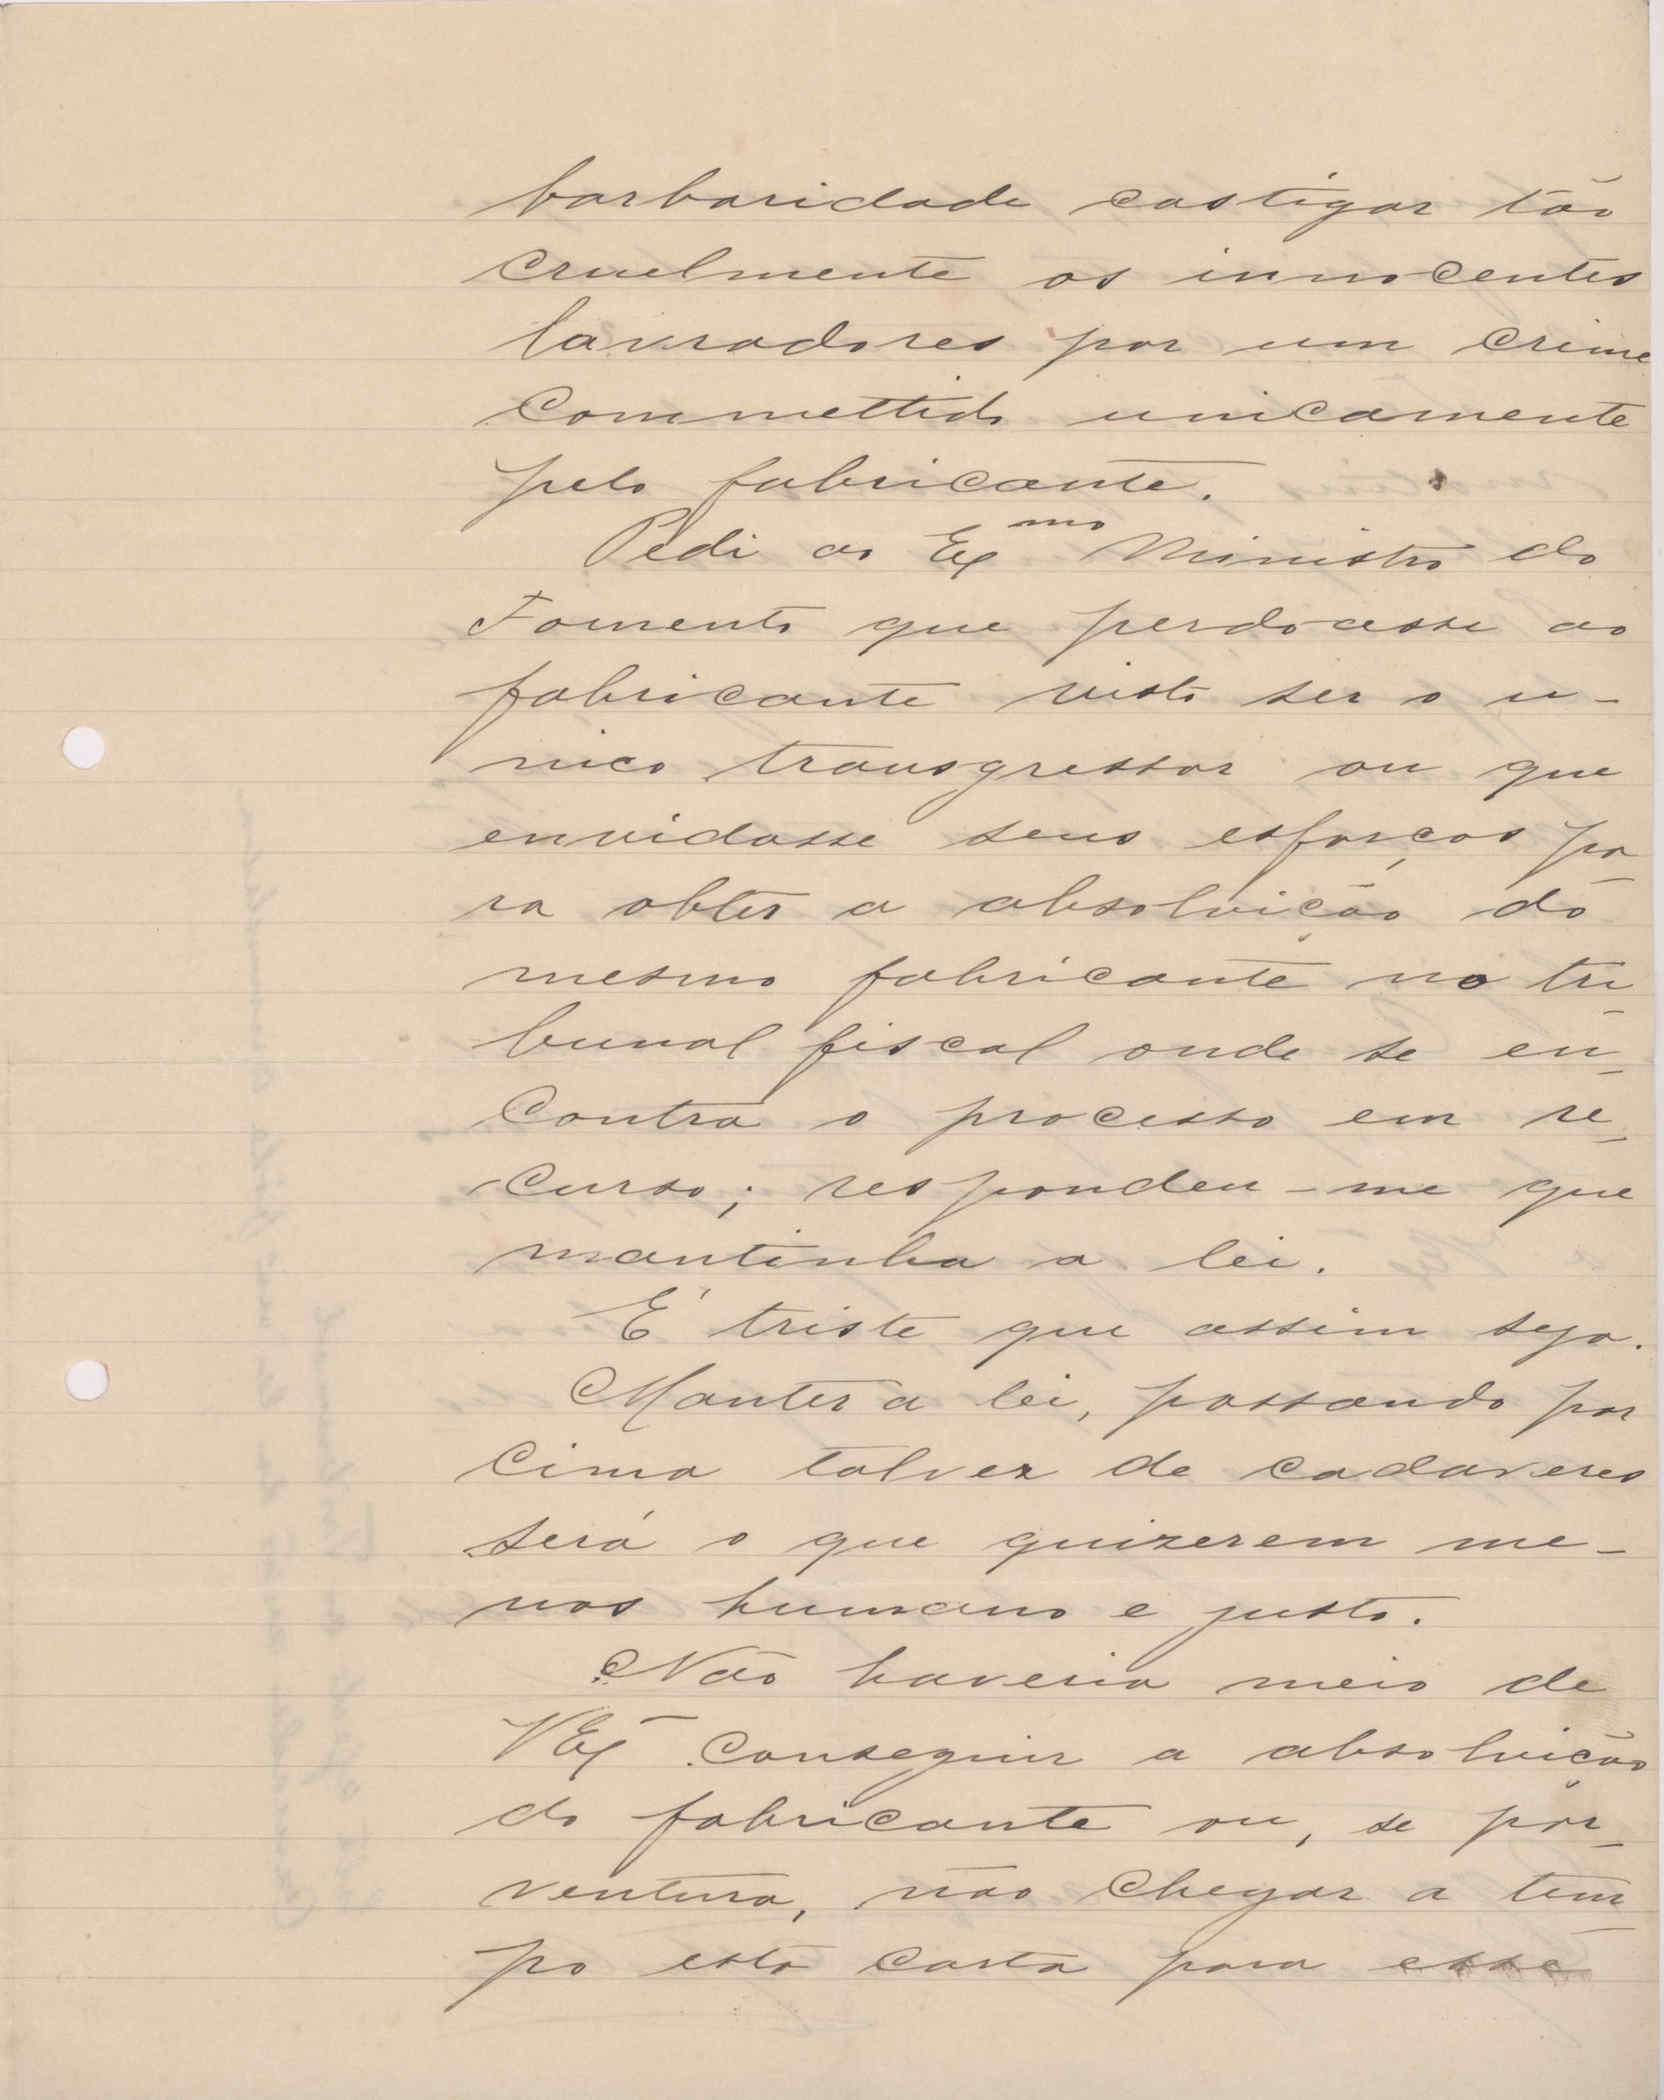 barbaridade castigar tão
cruelmente os innocentes
lavradores por um crime
commettido unicamente
pelo fabricante.
Pedi ao Ex.mo Ministro do
Fomento que perdoasse ao
fabricante visto ser o u-
nico transgressor ou que
envidasse seus esforços pa-
ra obter a absolvição do
mesmo fabricante no tri-
bunal fiscal onde se en-
contra o processo em re-
curso; respondeu-me que
mantinha a lei.
É triste que assim seja.
Manter a lei, passando por
cima talvez de cadaveres
será o que quizerem me-
nos humano e justo.
Não haveria meio de
V Ex.ª conseguir a absolvição
do fabricante ou, se por-
ventura, não chegar a tem-
po esta carta para esse